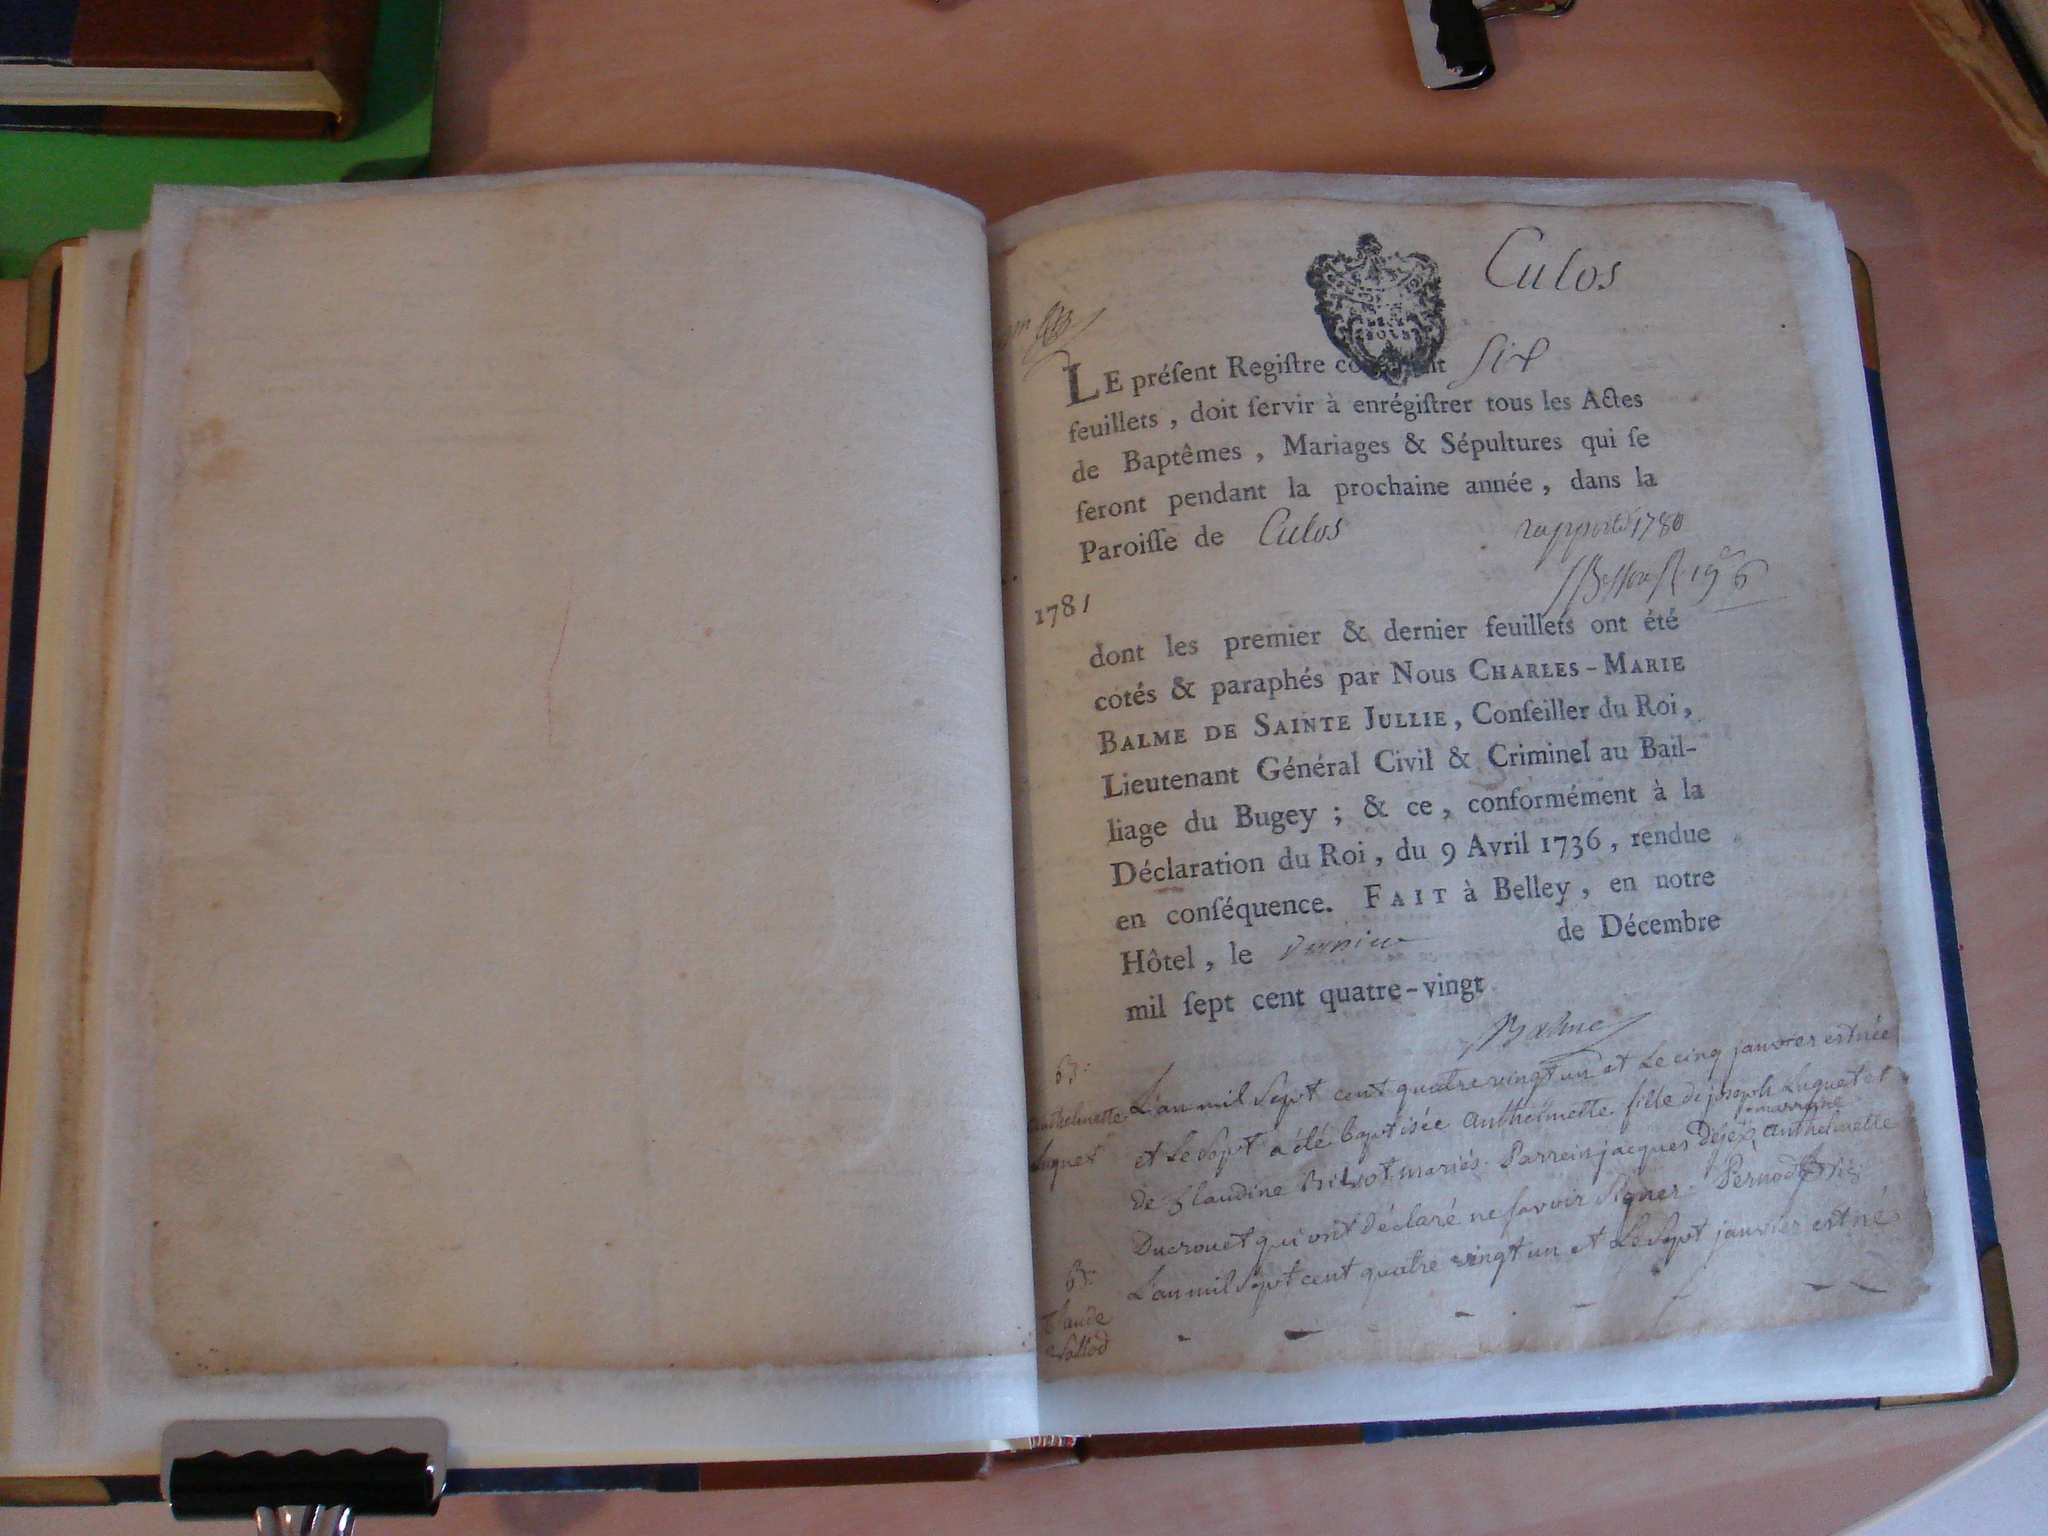 Culos
LE préſent Regiſtre contenant six
feuillets, doit ſervir à enrégiſtrer tous les Actes
de Baptêmes, Mariages & Sépultures qui ſe
feront pendant la prochaine année, dans la
Paroiſſe de Culos
rapporté 1780
1781
dont les premier & dernier feuillets ont été
cotés & paraphés par Nous CHARLES-MARIE
BALME DE SAINTE JULLIE, Conſeiller du Roi,
Lieutenant Général Civil & Criminel au Bail-
liage du Bugey ; & ce, conformément à la
Déclaration du Roi, du 9 Avril 1736, rendue
en conſéquence. FAIT à Belley, en notre
Hôtel, le dernier de Décembre
mil ſept cent quatre-vingt
Balme
B:
anthelmette
Luquet
L'an mil Sept cent quatre vingt un et Le cinq janvier est née
et Le Sept a été baptisée anthelmette fille de joseph Luquet et
de Claudine mariés. Parrein jacques Dejéx, marraine anthelmette
Ducrouet qui ont déclaré ne savoir Signer.
B:
Claude
L'an mil Sept cent quatre vingt un et Le Sept janvier est né